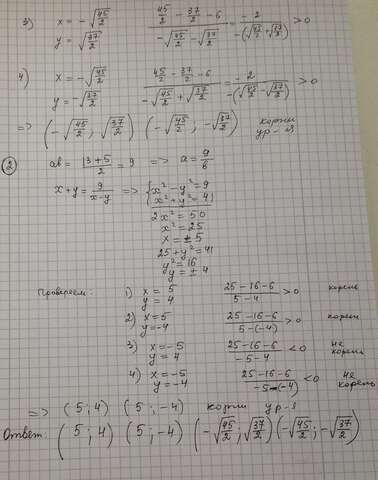 3) x = -√(45/2)   (45/2 - 37/2 - 6)/(-√(45/2) - √(37/2)) = -2/(-(√(45/2) + √(37/2))) > 0
y = √(37/2)
4) x = -√(45/2)   (45/2 - 37/2 - 6)/(-√(45/2) + √(37/2)) = -2/(-(√(45/2) - √(37/2))) > 0
y = -√(37/2)
=> (-√(45/2); √(37/2)) (-√(45/2); -√(37/2)) корни
ур-я
② ab = (13+5)/2 = 9 => a = 9/b
x+y = 9/(x-y) => { x² - y² = 9
x² + y² = 41
2x² = 50
x² = 25
x = ±5
25 + y² = 41
y² = 16
y = ±4
Проверяем: 1) x = 5   (25-16-6)/(5-4) > 0 корень
y = 4
2) x = 5   (25-16-6)/(5-(-4)) > 0 корень
y = -4
3) x = -5   (25-16-6)/(-5-4) < 0 не
y = 4   корень
4) x = -5   (25-16-6)/(-5-(-4)) < 0 не
y = -4   корень
=> (5; 4) (5; -4) корни ур-я
Ответ: (5; 4) (5; -4) (-√(45/2); √(37/2)) (-√(45/2); -√(37/2))